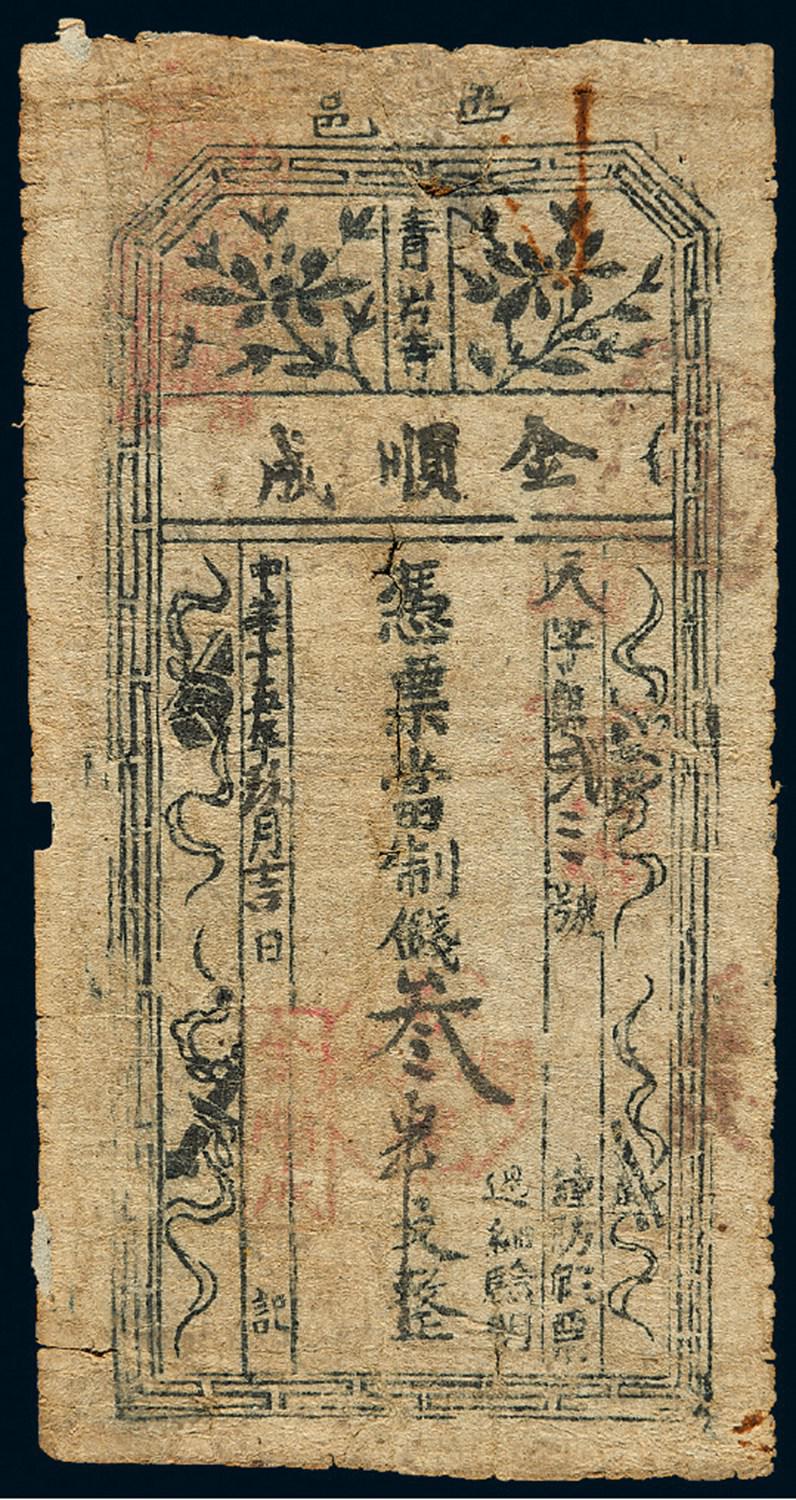 邑
青岩寺
金順成
天字第貳三號
謹防假票
過細驗明
憑票當制錢叁
文整
中華十五年玖月吉日
記